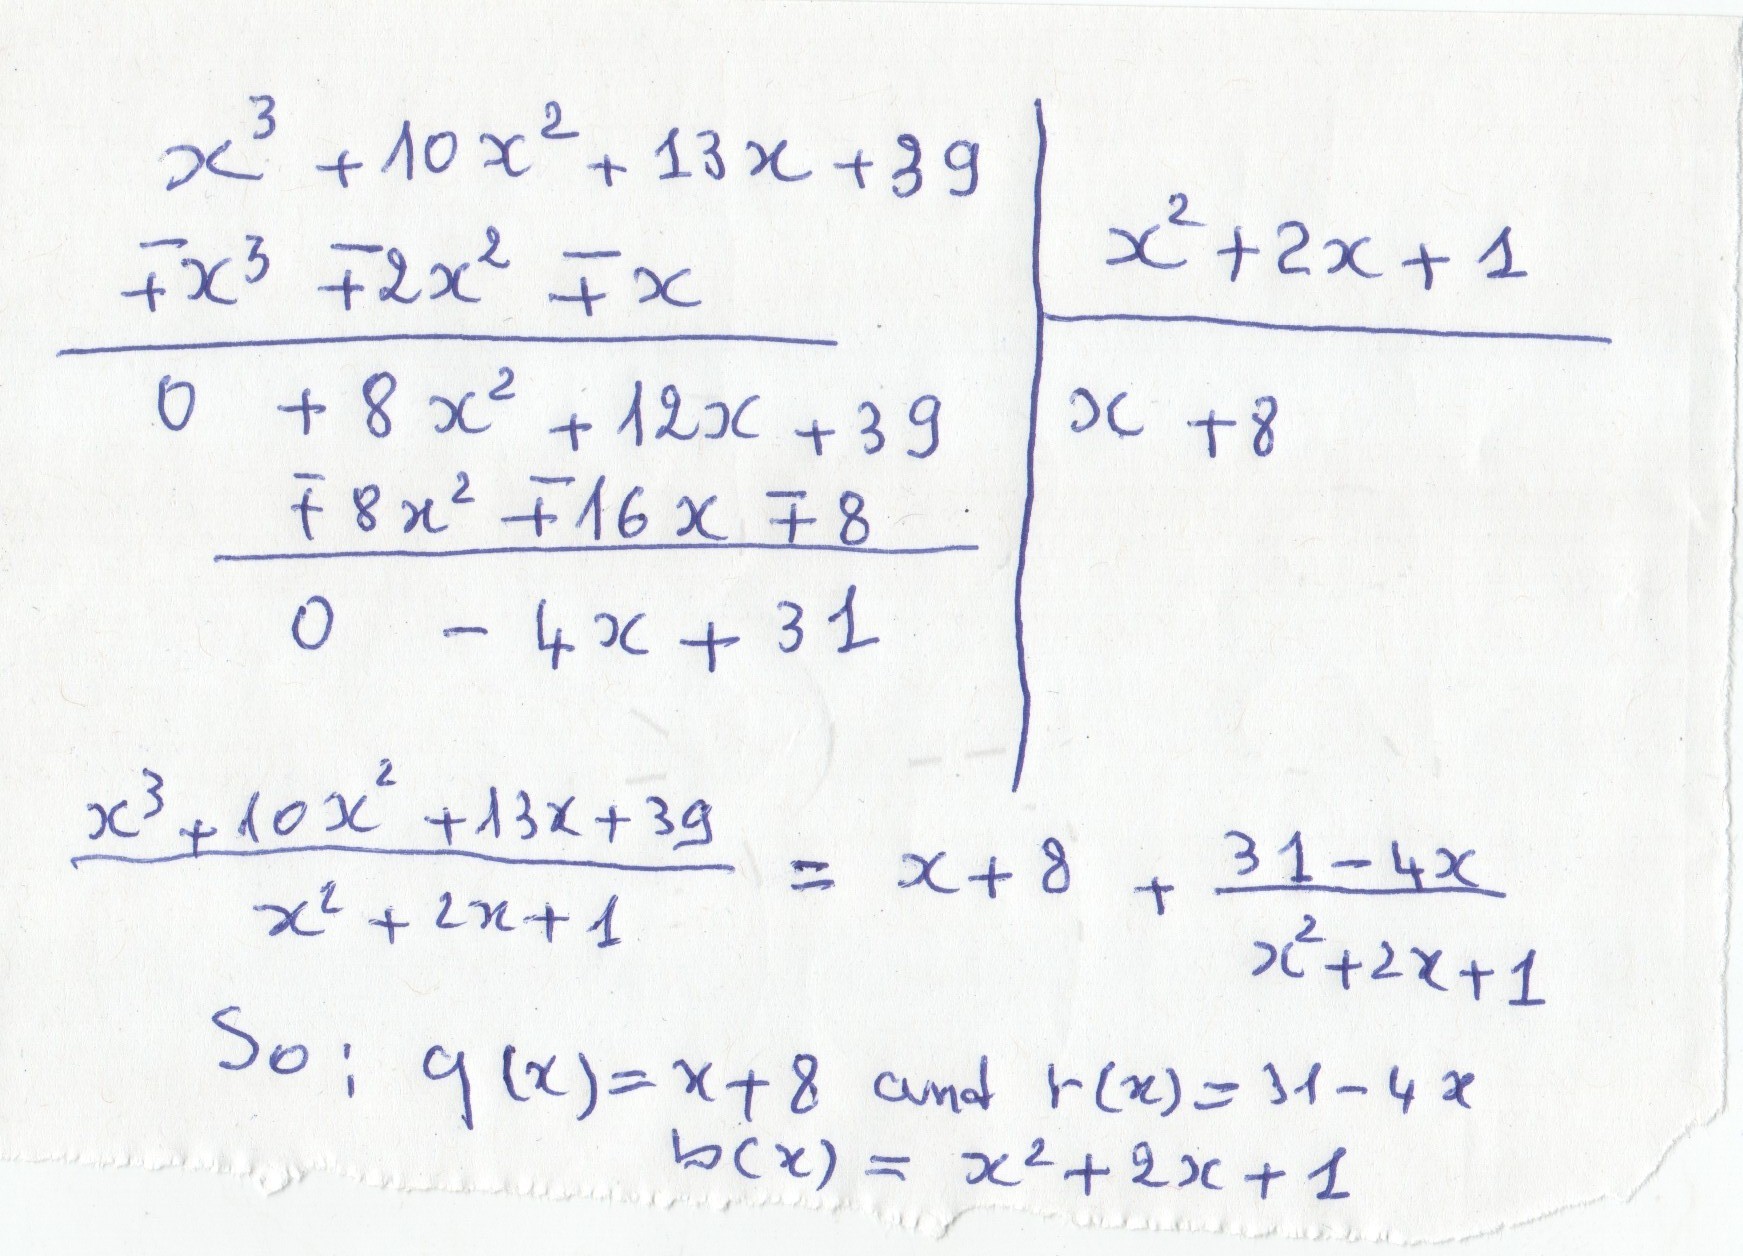 x³ + 10x² + 13x + 39
x² + 2x + 1
∓x³ ∓2x² ∓ x
0 + 8x² + 12x + 39
x + 8
∓ 8x² ∓ 16x ∓ 8
0 - 4x + 31
x³ + 10x² + 13x + 39 / x² + 2x + 1 = x + 8 + 31 - 4x / x² + 2x + 1
So; q(x) = x + 8 and r(x) = 31 - 4x
b(x) = x² + 2x + 1